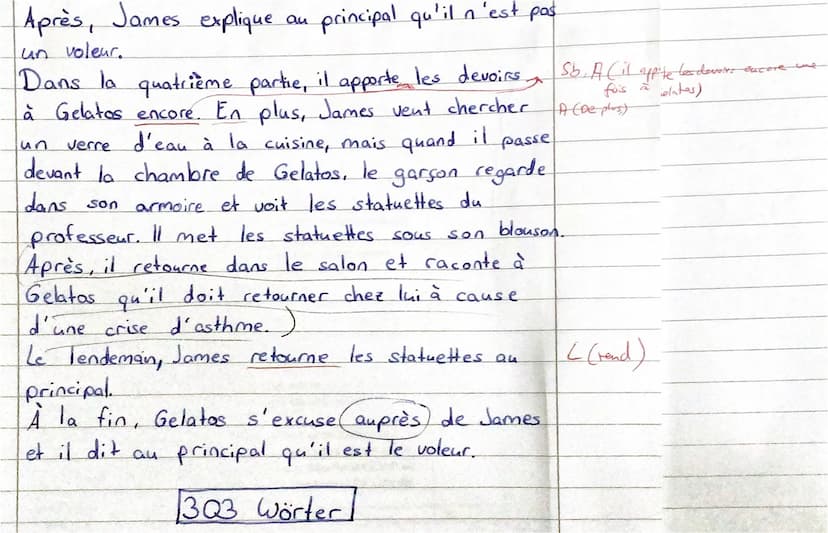 Après, James explique au principal qu'il n'est pas
un voleur.
Dans la quatrième partie, il apporte les devoirs
Sb. A (il apporte les devoirs encore une
à Gelatos encore. En plus, James veut chercher
fois à Gelatos)
A (De plus)
un verre d'eau à la cuisine, mais quand il passe
devant la chambre de Gelatos, le garçon regarde
dans son armoire et voit les statuettes du
professeur. Il met les statuettes sous son blouson.
Après, il retourne dans le salon et raconte à
Gelatos qu'il doit retourner chez lui à cause
d'une crise d'asthme.)
Le lendemain, James retourne les statuettes au
L (rend)
principal.
À la fin, Gelatos s'excuse auprès de James
et il dit au principal qu'il est le voleur.
303 Wörter